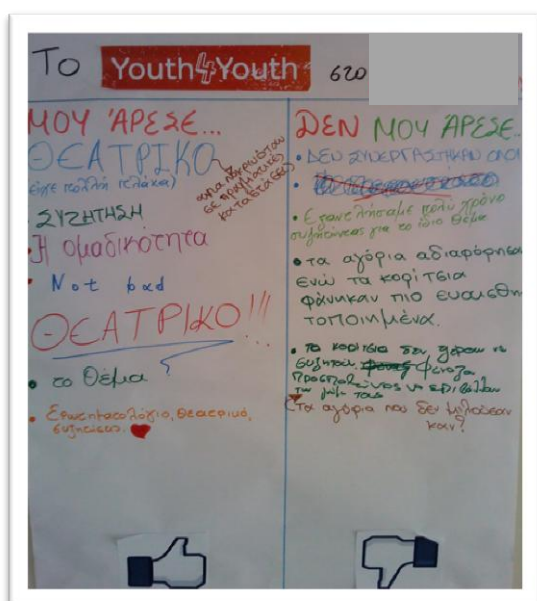 Το Youth4Youth στο
ΜΟΥ ΆΡΕΣΕ...
ΘΕΑΤΡΙΚΟ
(είχε πολλή γελάκια)
σε πραγματικές
καταστάσεις
ΣΥΖΗΤΗΣΗ
Η ομαδικότητα
• Not bad
ΘΕΑΤΡΙΚΟ!!!
• το θέμα
• Ερωτηματολόγιο, θεατρικό,
συζητήσεις.
ΔΕΝ ΜΟΥ ΆΡΕΣΕ..
• ΔΕΝ ΣΥΝΕΡΓΑΣΤΗΚΑΝ ΟΛΟΙ
• Σπαταλήσαμε πολύ χρόνο
συζητώντας για το ίδιο θέμα
• τα αγόρια αδιαφόρησαν
ενώ τα κορίτσια
φάνηκαν πιο ευαισθη
τοποιημένα.
• τα κορίτσια δεν ξέρουν να
συζητούν. φώναζαν
προσπαθώντας να επιβάλλουν
τη γνώμη τους
(Τα αγόρια που δεν μιλούσαν
καν?